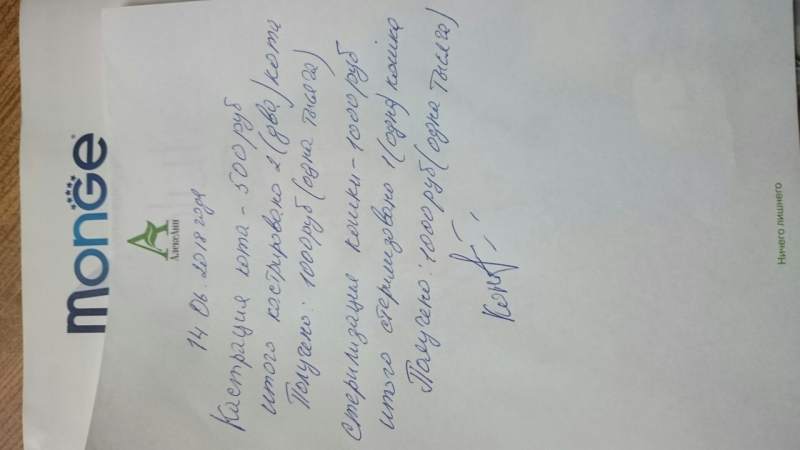 monge
АлексАнн
14 06. 2018 года
Кастрация кота - 500 руб
итого кастрировано 2 (два) кота
Получено: 1000 руб (одна тысяча)
Стерилизация кошки - 1000 руб
итого стерилизовано 1 (одна) кошка
Получено: 1000 руб (одна тысяча)
Ничего лишнего